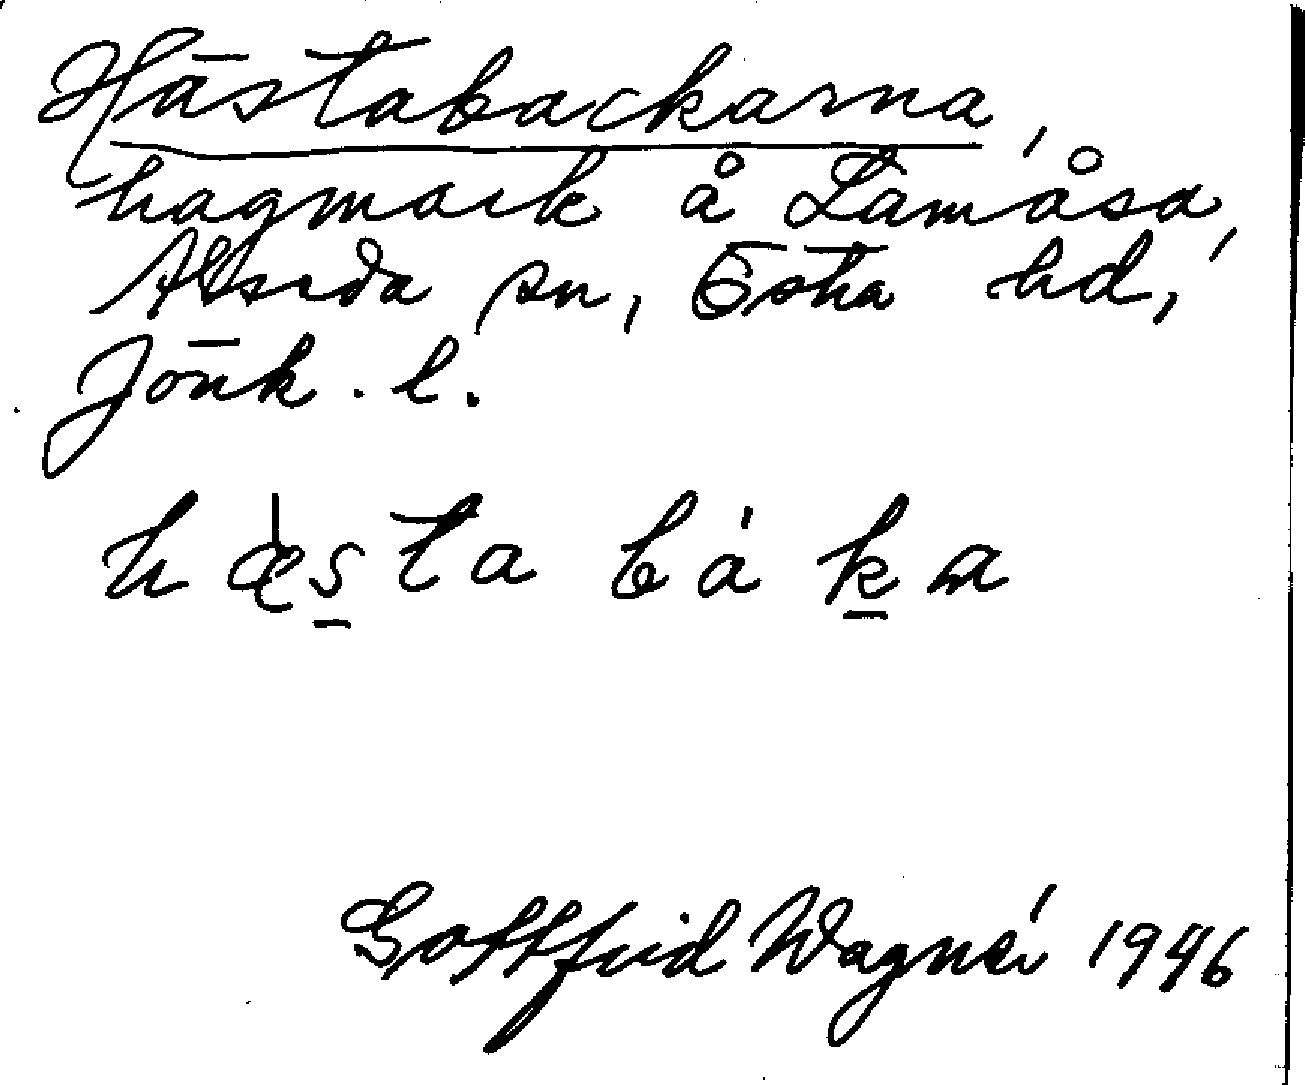 Hästabackarna,
hagmark å Lamåsa,
Alseda sn, Östra hd,
Jönk. l.
hæs̠ta bák̠a
Gottfrid Wagnér 1946